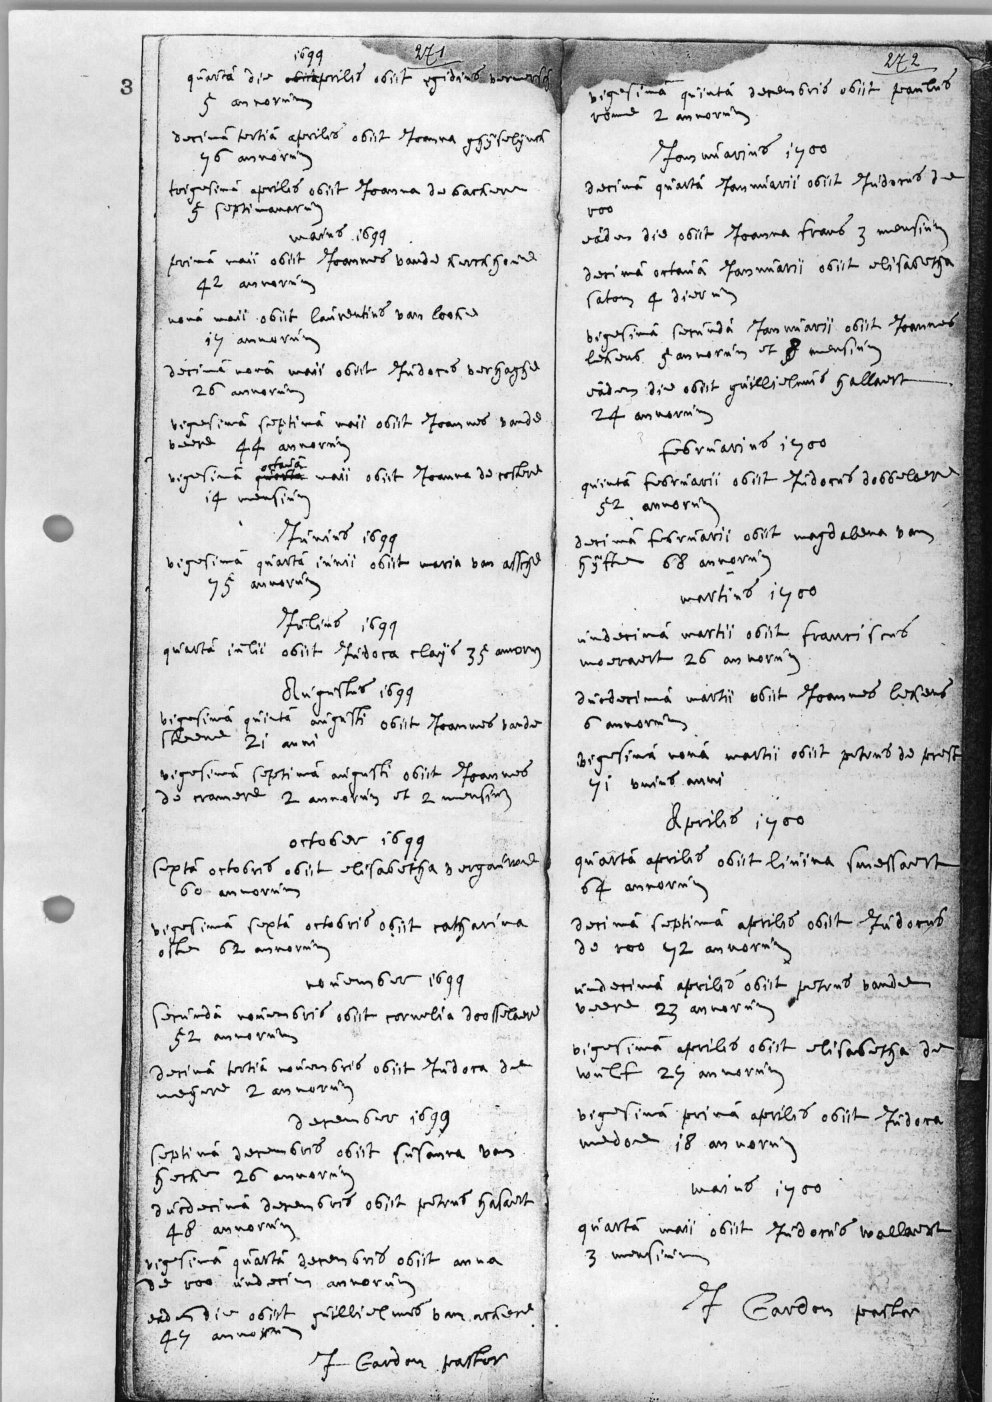 3
1699
271
quarta die aprilis obiit egidius
5 annorum
decimâ tertiâ aprilis obiit Joanna ghijselijnck
76 annorum
trigesimâ aprilis obiit Joanna de backere
5 septimanarum
maius 1699
primâ maii obiit Joannes vande kerckhove
42 annorum
nonâ maii obiit laurentius van looke
17 annorum
decimâ nonâ maii obiit Judocus verhaghe
26 annorum
vigesimâ septimâ maii obiit Joannes vande
veere 44 annorum
octavâ
vigesimâ quarta maii obiit Joanna de costere
14 mensium
Junius 1699
vigesimâ quartâ iunii obiit maria van assche
75 annorum
Julius 1699
quartâ iulii obiit Judoca claijs 35 annorum
Augustus 1699
vigesimâ quintâ augusti obiit Joannes vande
steene 21 anni
vigesimâ septimâ augusti obiit Joannes
de cramere 2 annorum et 2 mensium
october 1699
sextâ octobris obiit elisabetha vergauwe
60 annorum
vigesimâ sextâ octobris obiit catharina
oste 62 annorum
november 1699
secundâ novembris obiit cornelia dosselaere
52 annorum
decimâ tertiâ novembris obiit Judoca de
meijere 2 annorum
december 1699
septimâ decembris obiit susanna van
hecke 26 annorum
duodecimâ decembris obiit petrus hasaert
48 annorum
vigesimâ quartâ decembris obiit anna
de roo undecim annorum
eâdem die obiit guillielmus van ackere
47 annorum
J Cardon pastor
272
vigesimâ quintâ decembris obiit paulus
rome 2 annorum
Januarius 1700
decimâ quartâ Januarii obiit Judocus de
roo
eâdem die obiit Joanna frans 3 mensium
decimâ octavâ Januarii obiit elisabetha
saton 4 dierum
vigesimâ secundâ Januarii obiit Joannes
lekens 5 annorum et 8 mensium
eâdem die obiit guillielmus hallaert
24 annorum
februarius 1700
quintâ februarii obiit Judocus dosselaere
52 annorum
decimâ februarii obiit magdalena van
hijfte 68 annorum
martius 1700
undecimâ martii obiit franciscus
moeraert 26 annorum
duodecimâ martii obiit Joannes lekens
6 annorum
vigesimâ nonâ martii obiit petrus de prest
71 unius anni
Aprilis 1700
quartâ aprilis obiit livina smessaert
64 annorum
decimâ septimâ aprilis obiit Judocus
de roo 72 annorum
undecimâ aprilis obiit petrus vande
veere 23 annorum
vigesimâ aprilis obiit elisabetha de
wulf 27 annorum
vigesimâ primâ aprilis obiit Judoca
medore 18 annorum
maius 1700
quartâ maii obiit Judocus wallaert
3 mensium
J Cardon pastor